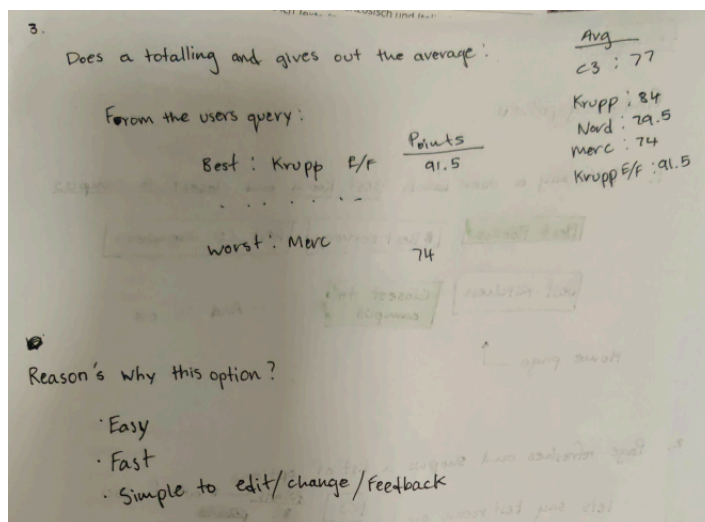 3.
Does a totalling and gives out the average:
From the users query:
Points
Best : Krupp E/F 91.5
. . . . . . -
worst : Merc 74
Avg
C3 : 77
Krupp : 84
Nord : 79.5
merc : 74
Krupp E/F : 91.5
Reason's why this option?
· Easy
· Fast
· Simple to edit/change/Feedback